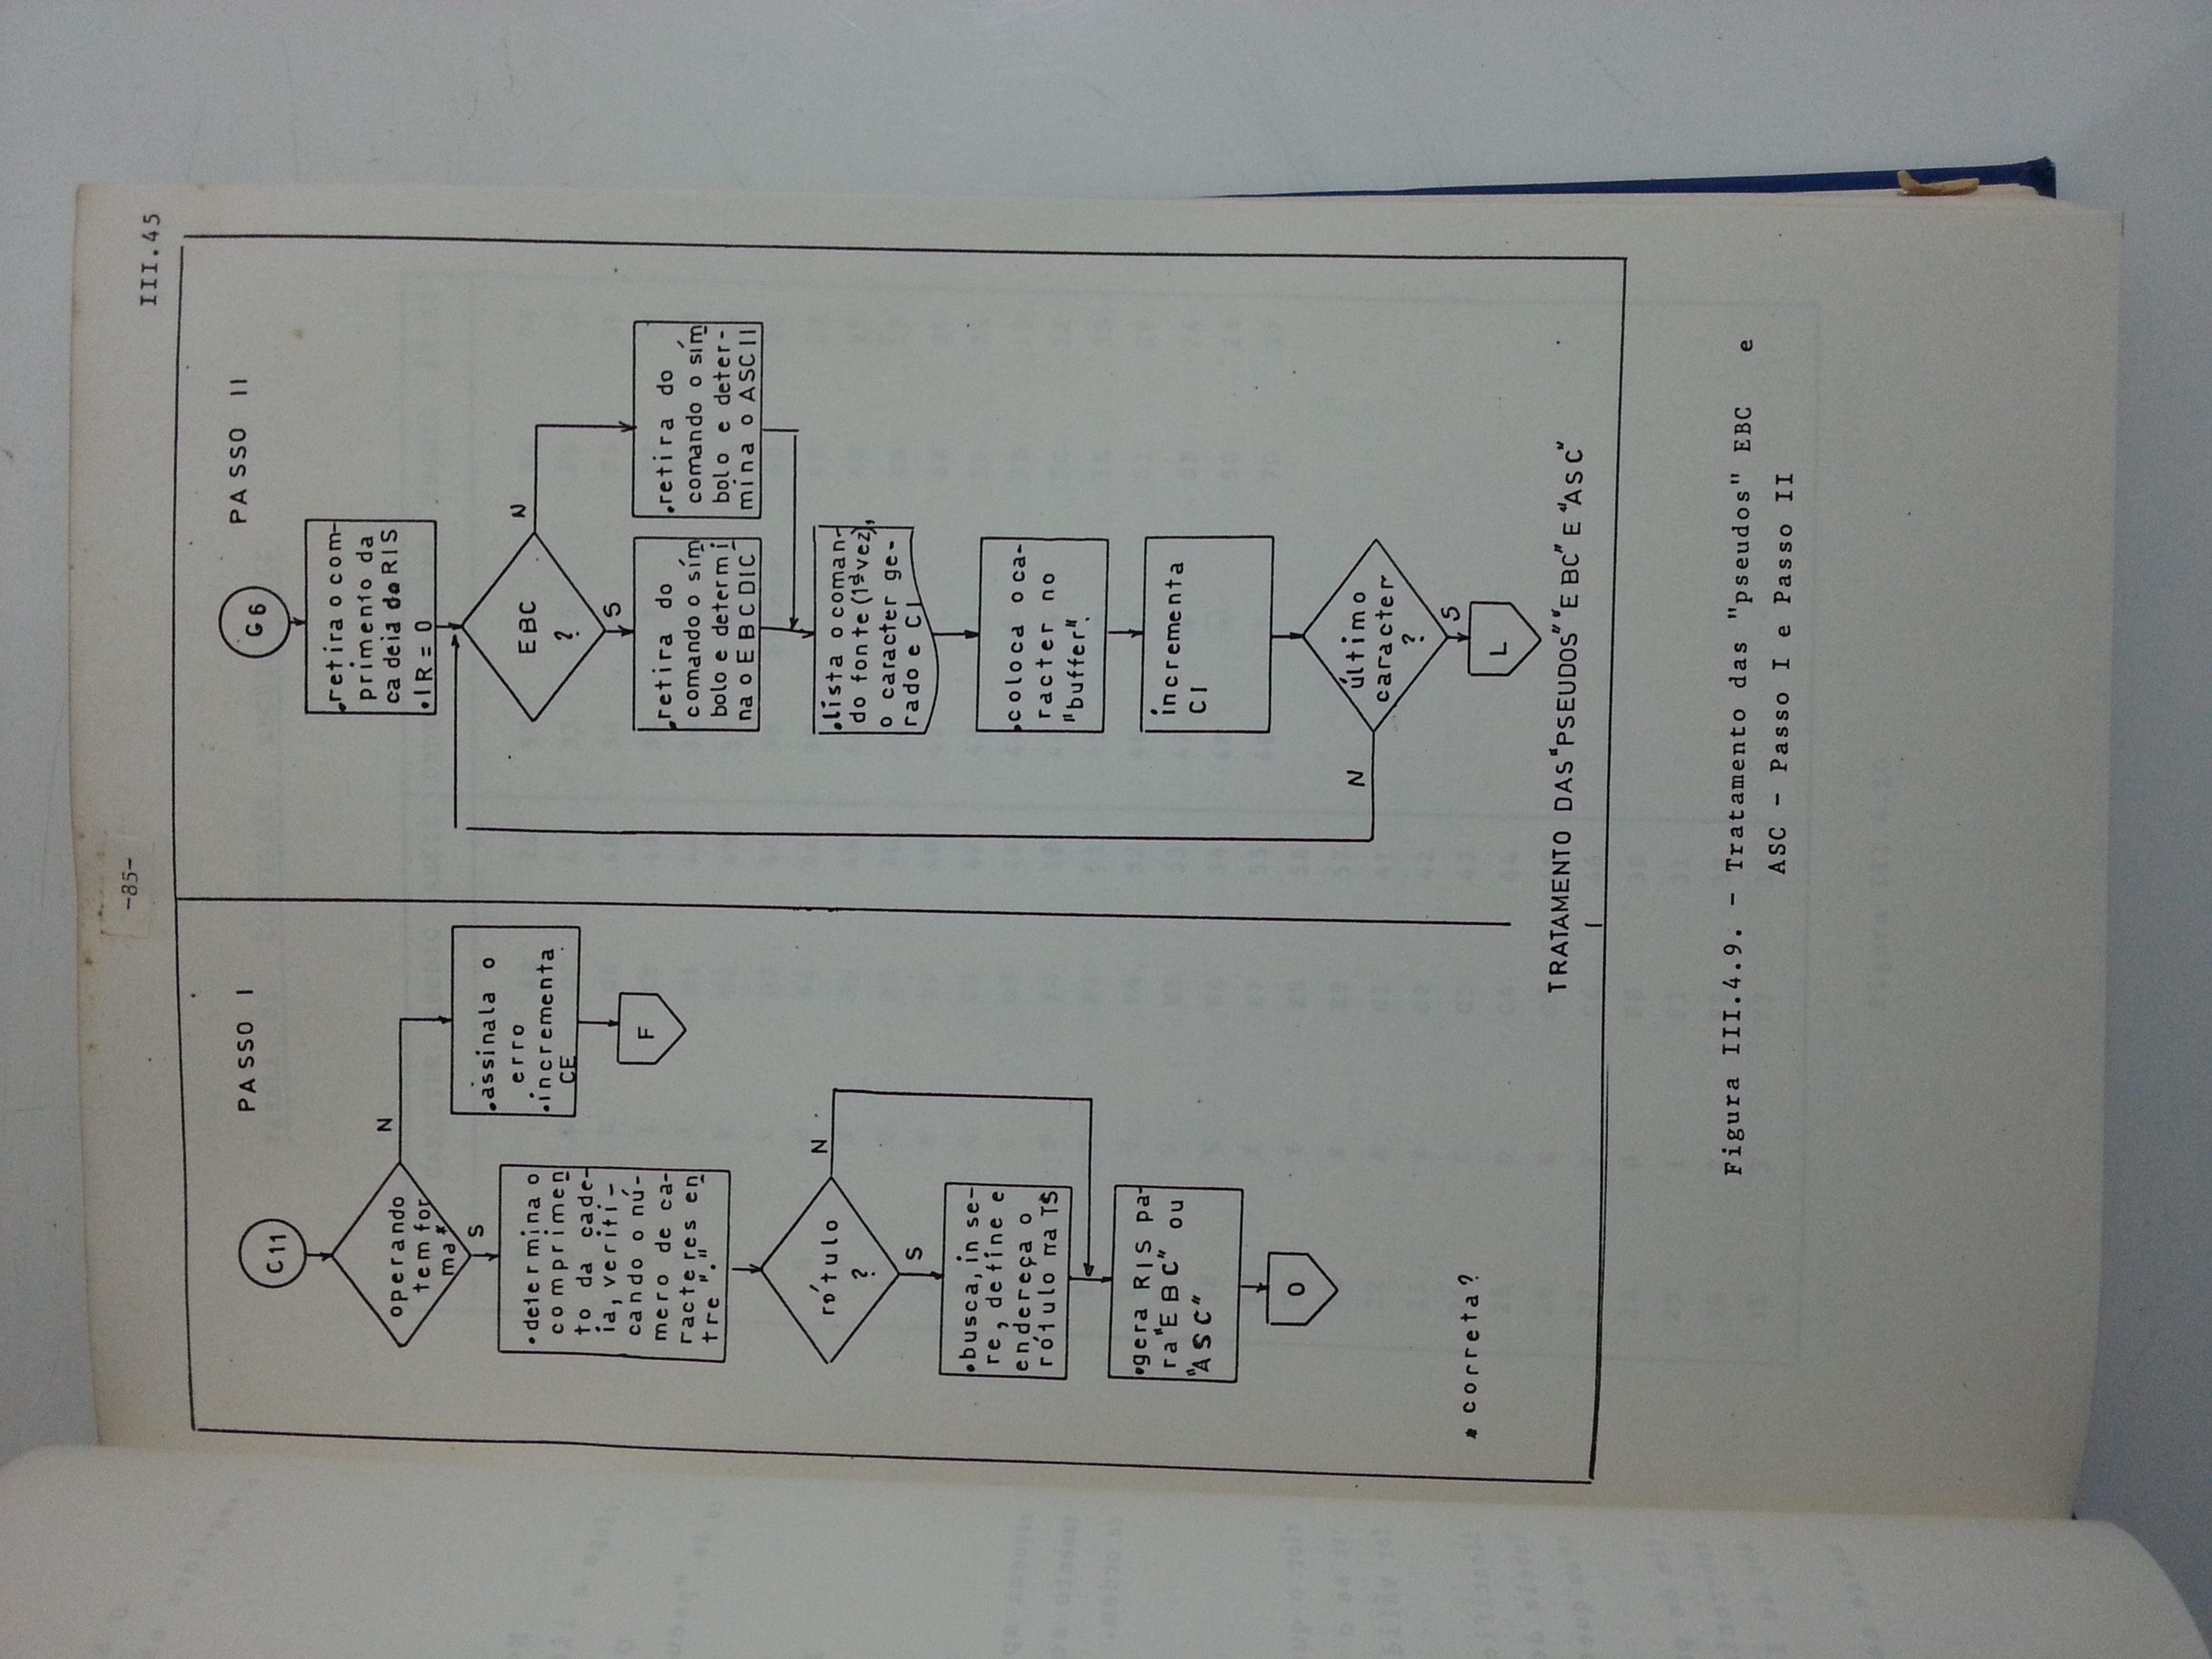 -85-
III.45
PASSO I
C11
operando
tem for
ma*
N
S
.assinala o
erro
.incrementa
CE
F
.determina o
comprimen
to da cade-
ia, verifi-
cando o nú-
mero de ca-
racteres en
tre "."
rótulo
?
N
S
.busca, inse-
re, define e
endereça o
rótulo na TS
.gera RIS pa-
ra "EBC" ou
"ASC"
O
* correta?
PASSO II
G6
.retira o com-
primento da
cadeia do RIS
.IR = 0
EBC
?
N
S
.retira do
comando o sím
bolo e determi
na o EBCDIC
.retira do
comando o sím
bolo e deter-
mina o ASCII
.lista o coman-
do fonte (1ª vez),
o caracter ge-
rado e CI
.coloca o ca-
racter no
"buffer".
incrementa
CI
último
caracter
?
N
S
L
TRATAMENTO DAS "PSEUDOS" "EBC" E "ASC"
Figura III.4.9. - Tratamento das "pseudos" EBC e
ASC - Passo I e Passo II